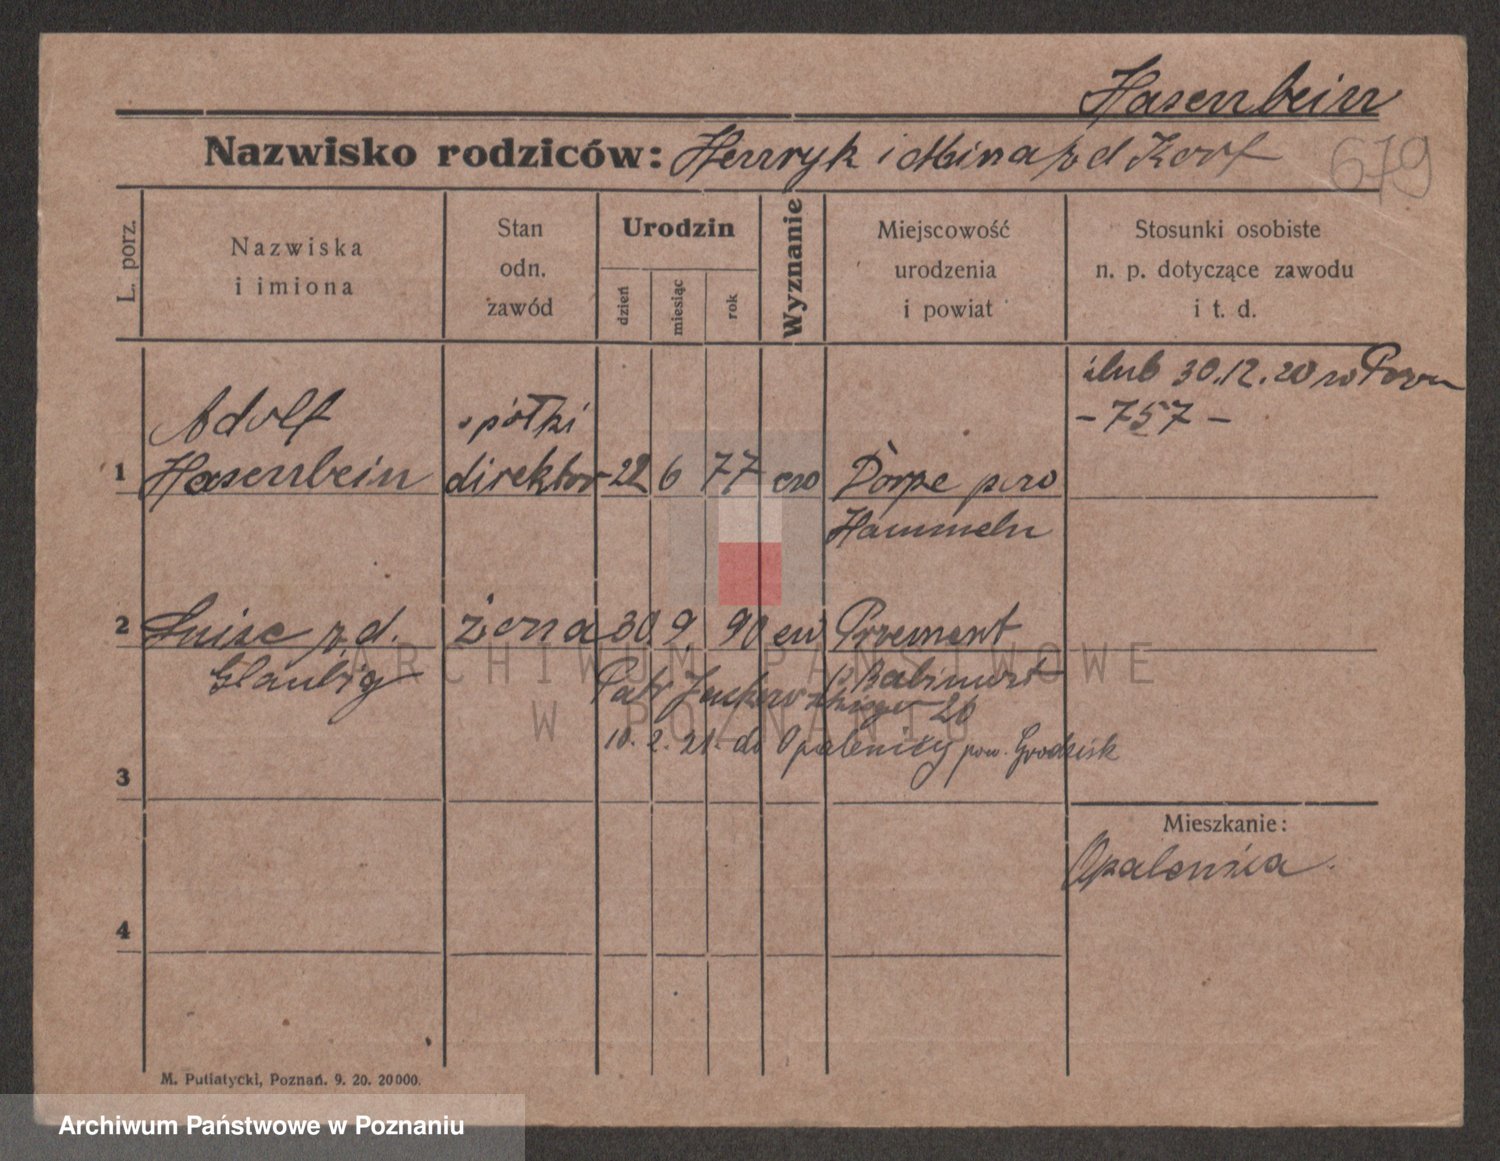 Hasenbein
Nazwisko rodziców: Henryk i Mina z d Korf
679
L. porz.
Nazwiska
i imiona
Stan
odn.
zawód
Urodzin
dzień
miesiąc
rok
Wyznanie
Miejscowość
urodzenia
i powiat
Stosunki osobiste
n. p. dotyczące zawodu
i t. d.
ślub 30.12.20 w Pozn
- 757 -
1
Adolf
Hasenbein
spółki
direktor
22 6 77 ew
Dörpe pow
Hammeln
2
Luise z d.
Glaubig
żona
30 9 90 ew
Przement
p Babimost
Patr 20
10. 2. 21. do Opalenicy pow. Grodzisk
3
4
Mieszkanie:
Opalenica.
ARCHIWUM PAŃSTWOWE
W POZNANIU
M. Putiatycki, Poznań. 9. 20. 20000.
Archiwum Państwowe w Poznaniu